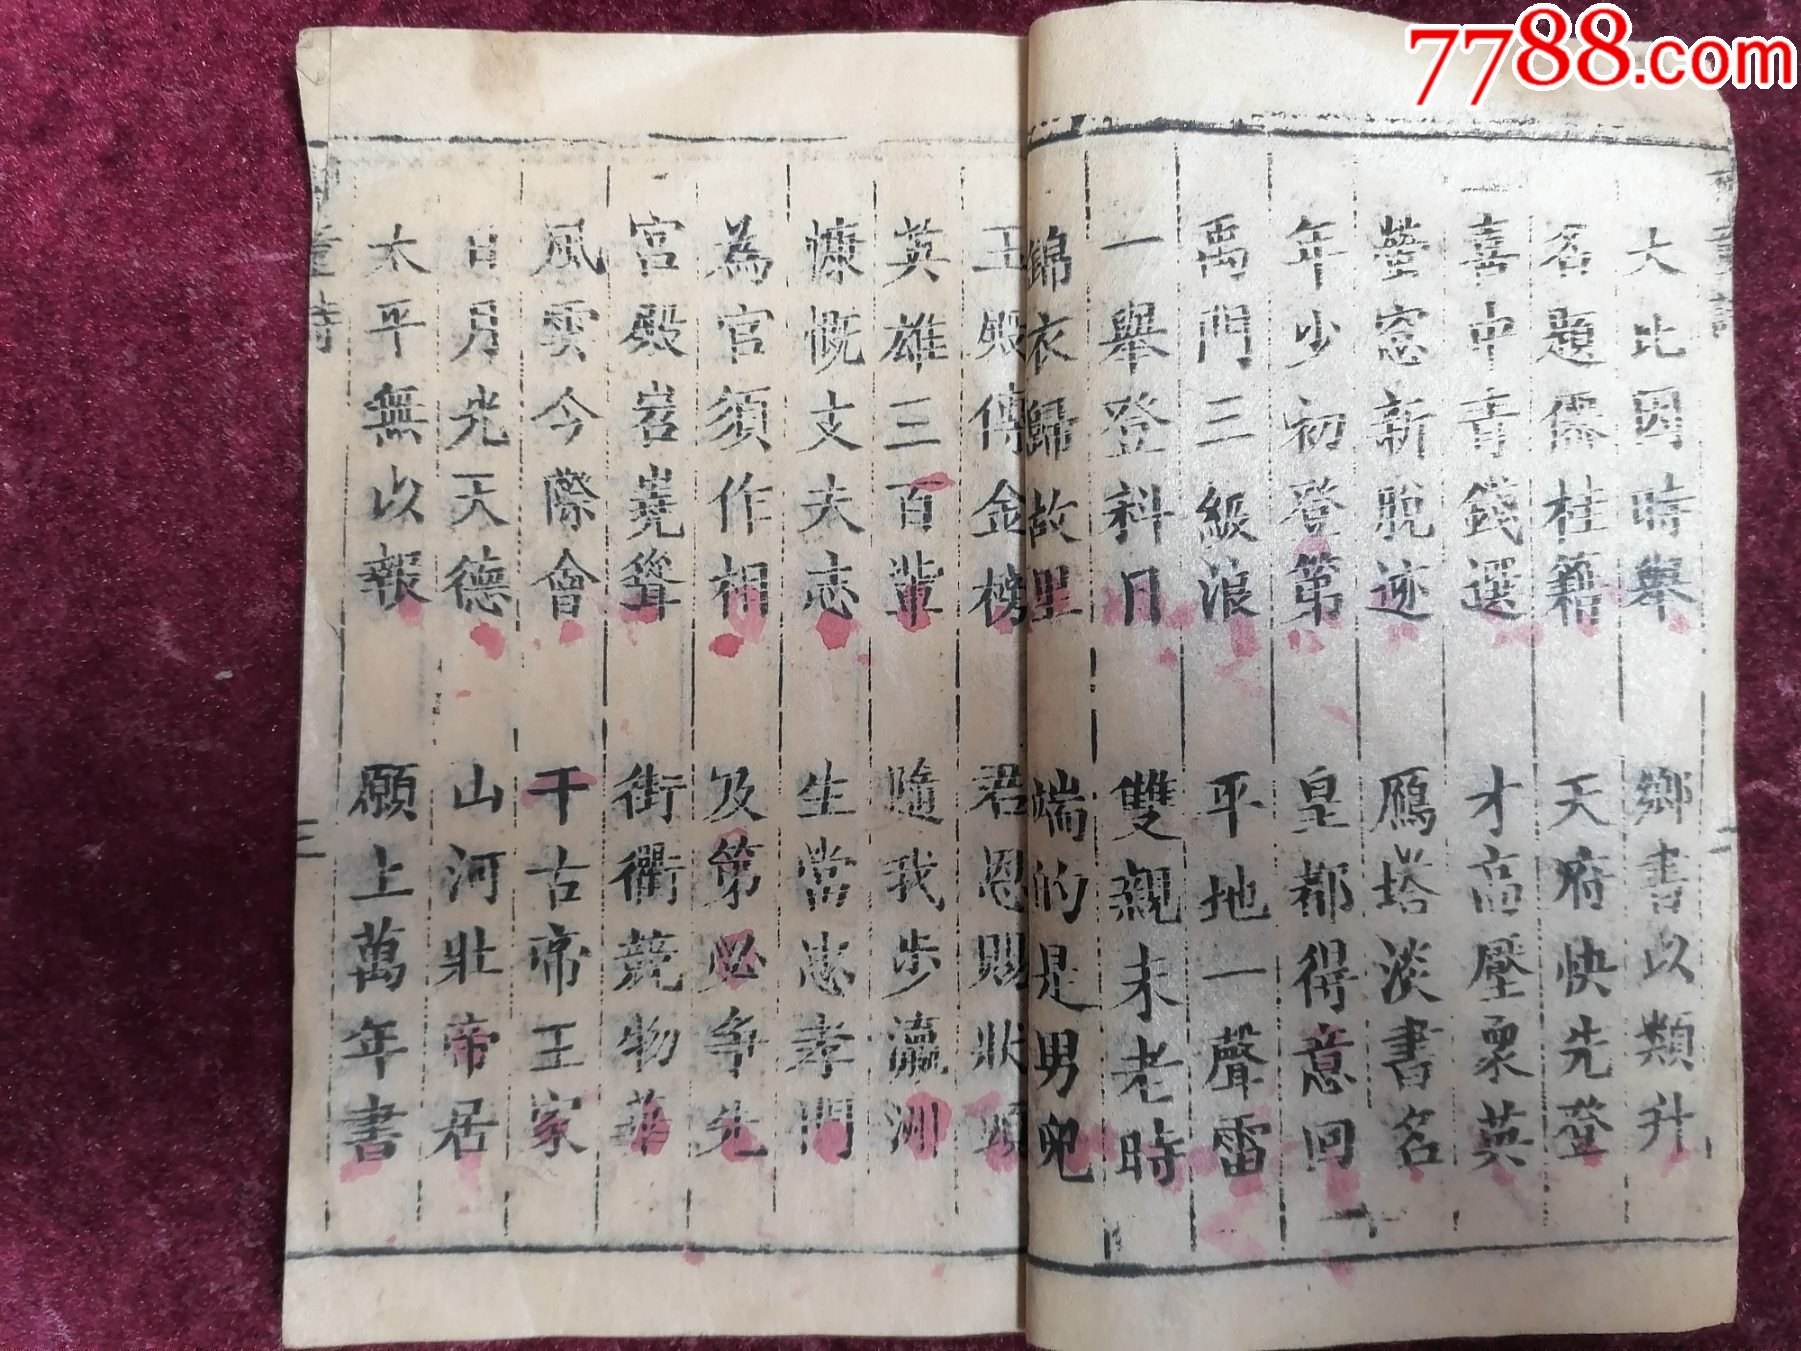 7788.com
大比因時舉 鄉書以類升
名題僊桂籍 天府快先登
喜中青錢選 才高壓眾英
螢窓新脫迹 鴈塔淡書名
年少初登第 皇都得意回
禹門三級浪 平地一聲雷
一舉登科日 雙親未老時
錦衣歸故里 端的是男兒
玉殿傳金榜 君恩賜狀頭
英雄三百輩 隨我步瀛洲
慷慨丈夫志 生當忠孝門
為官須作相 及第必爭先
宮殿岧嶤聳 街衢競物華
風雲今際會 千古帝王家
日月光天德 山河壯帝居
太平無以報 願上萬年書
童詩
三